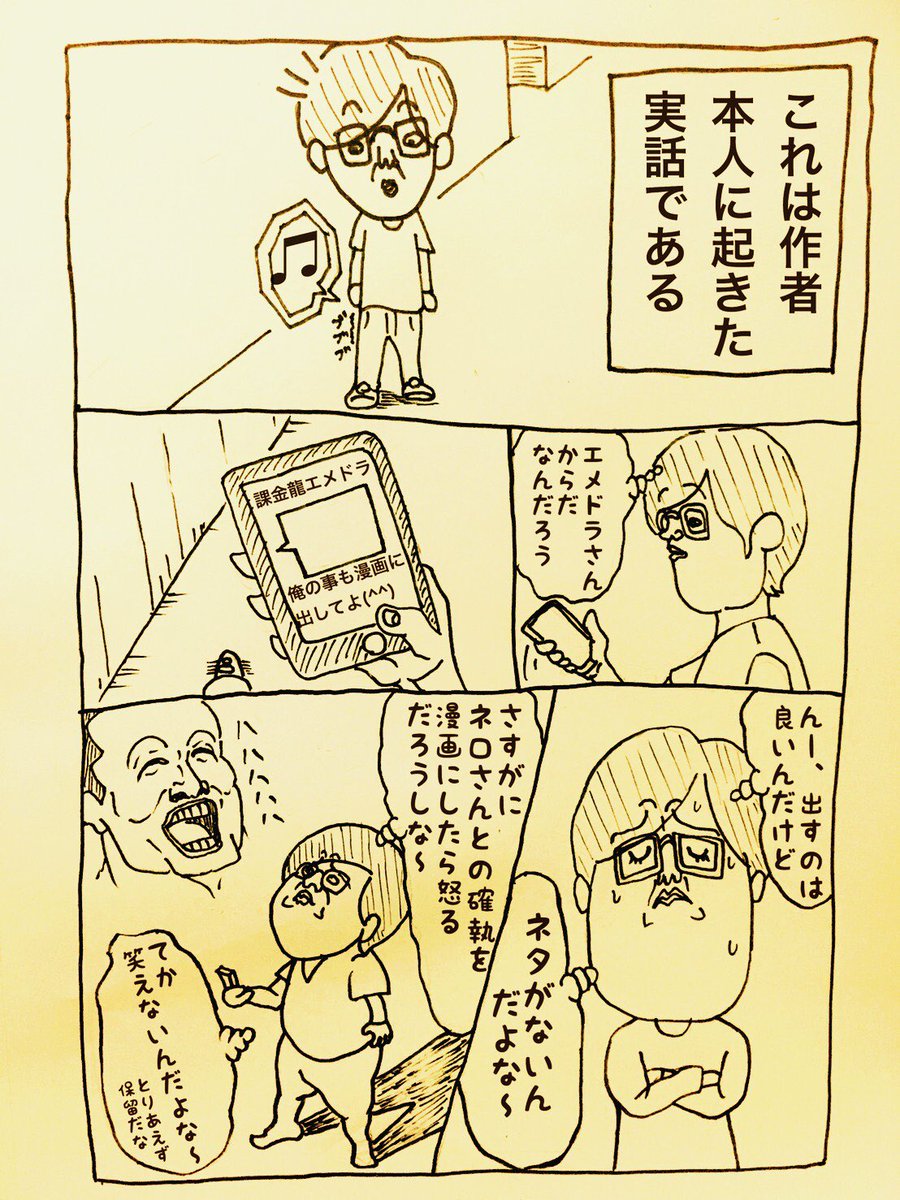 これは作者
本人に起きた
実話である
ブブブ
エメドラさん
からだ
なんだろう
課金龍エメドラ
俺の事も漫画に
出してよ(^^)
んー、出すのは
良いんだけど
ネタがないん
だよな〜
さすがに
ネロさんとの確執を
漫画にしたら怒る
だろうしな〜
ハハハハハ
てか
笑えないんだよな〜
とりあえず
保留だな